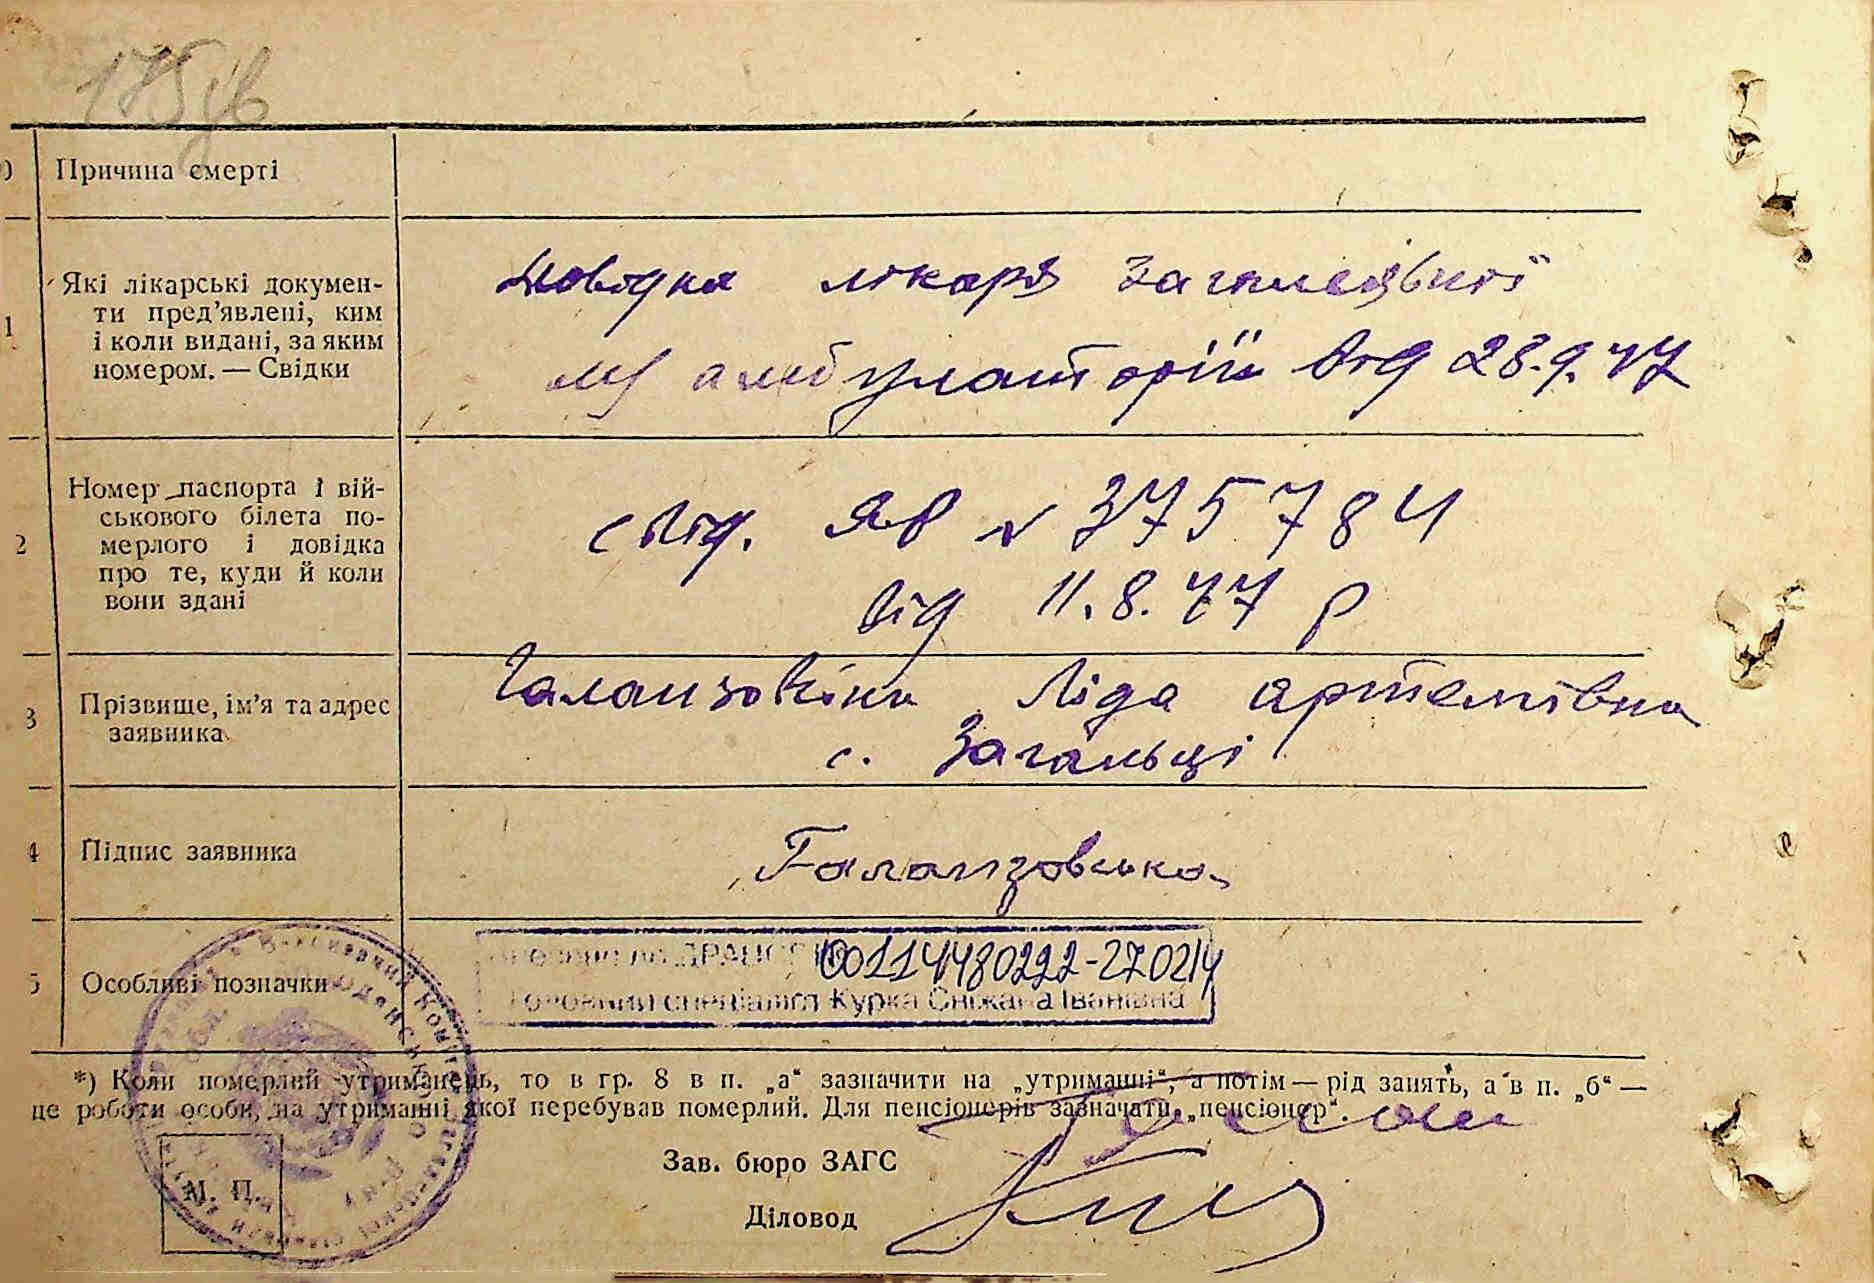 175 ув
Причина смерті
1 Які лікарські докумен-
ти пред'явлені, ким
і коли видані, за яким
номером. — Свідки
Довідка лікаря Загалецької
амбулаторії від 28.9.47
2 Номер паспорта і вій-
ськового білета по-
мерлого і довідка
про те, куди й коли
вони здані
свід. ЯВ № 375784
від 11.8.47 р
3 Прізвище, ім'я та адрес
заявника
Ліда Артемівна
с. Загальці
4 Підпис заявника
Галанзовська
5 Особливі позначки
ДРАЦС 00114480222-270214
Головний спеціаліст Курка Сніжана Іванівна
*) Коли померлий утриманець, то в гр. 8 в п. „а“ зазначити на „утриманні“, а потім — рід занять, а в п. „б“ —
це роботи особи, на утриманні якої перебував померлий. Для пенсіонерів зазначати „пенсіонер“.
Зав. бюро ЗАГС
М. П.
Діловод